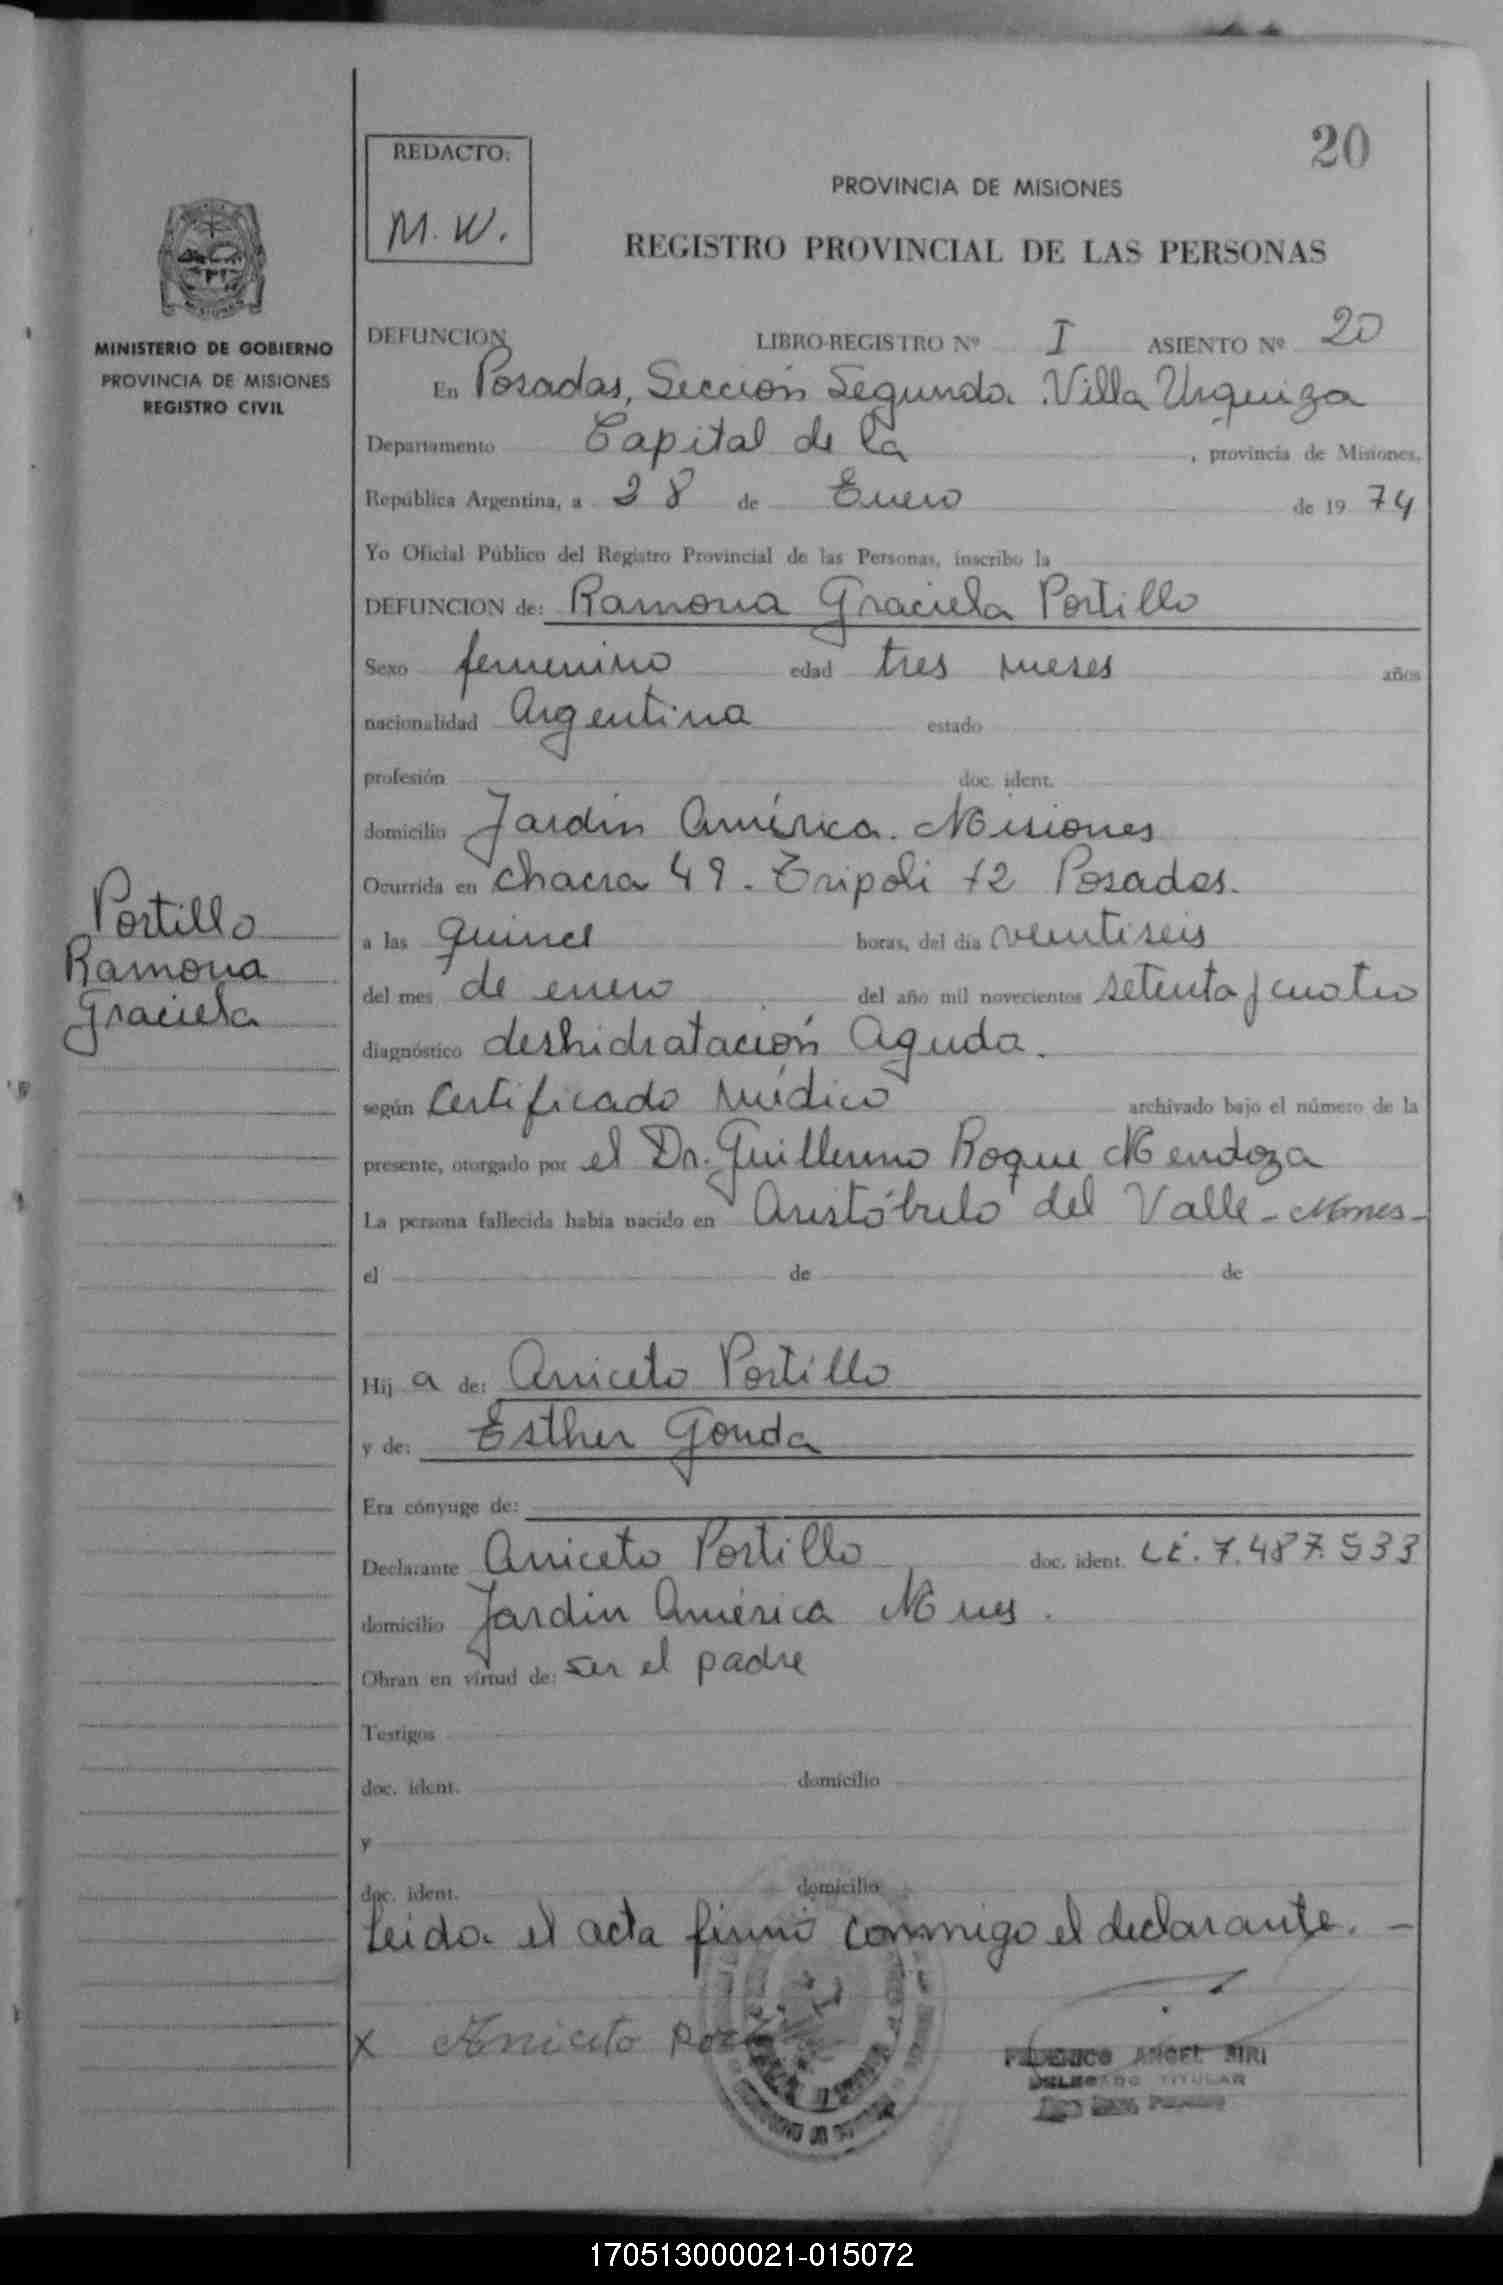 20
REDACTO:
M. W.
PROVINCIA DE MISIONES
REGISTRO PROVINCIAL DE LAS PERSONAS
MINISTERIO DE GOBIERNO
PROVINCIA DE MISIONES
REGISTRO CIVIL
DEFUNCION LIBRO-REGISTRO Nº I ASIENTO Nº 20
En Posadas, Sección Segunda. Villa Urquiza
Departamento Capital de la , provincia de Misiones.
República Argentina, a 28 de Enero de 19 74
Yo Oficial Público del Registro Provincial de las Personas, inscribo la
DEFUNCION de: Ramona Graciela Portillo
Sexo femenino edad tres meses años
nacionalidad Argentina estado
profesión doc. ident.
domicilio Jardín América. Misiones
Ocurrida en chacra 49. Tripoli 12 Posadas.
a las quince horas, del día veintiseis
del mes de enero del año mil novecientos setenta y cuatro
diagnóstico deshidratación Aguda.
según Certificado Médico archivado bajo el número de la
presente, otorgado por el Dr. Guillermo Roque Mendoza
La persona fallecida había nacido en Aristóbulo del Valle - Mnes -
el de de
Hij a de: Aniceto Portillo
y de: Esther Gonda
Era cónyuge de:
Declarante Aniceto Portillo doc. ident. L.E. 7.487.533
domicilio Jardín América Mnes.
Obran en virtud de: ser el padre
Testigos
doc. ident. domicilio
y
doc. ident. domicilio
Leida el acta firmó conmigo el declarante. -
Portillo
Ramona
Graciela
x Aniceto
FEDERICO ANGEL
DELEGADO TITULAR
170513000021-015072